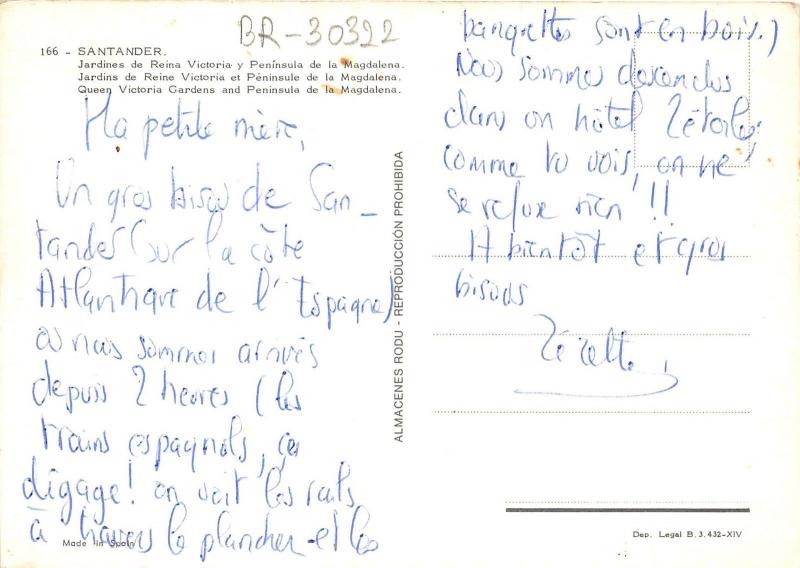 BR-30322
166 - SANTANDER.
Jardines de Reina Victoria y Península de la Magdalena.
Jardins de Reine Victoria et Péninsule de la Magdalena.
Queen Victoria Gardens and Peninsula de la Magdalena.
Ma petite mère,
Un gros bisou de San-
tander (sur la côte
Atlantique de l'Espagne)
où nous sommes arrivés
depuis 2 heures (les
trains espagnols, ça
dégage! on voit les rails
à travers le plancher et les
banquettes sont en bois.)
Nous sommes descendus
dans un hôtel 2 étoiles
comme tu vois, on ne
se refuse rien !!
A bientôt et gros
bisous
ALMACENES RODU - REPRODUCCIÓN PROHIBIDA
Made in Spain
Dep. Legal B. 3.432-XIV